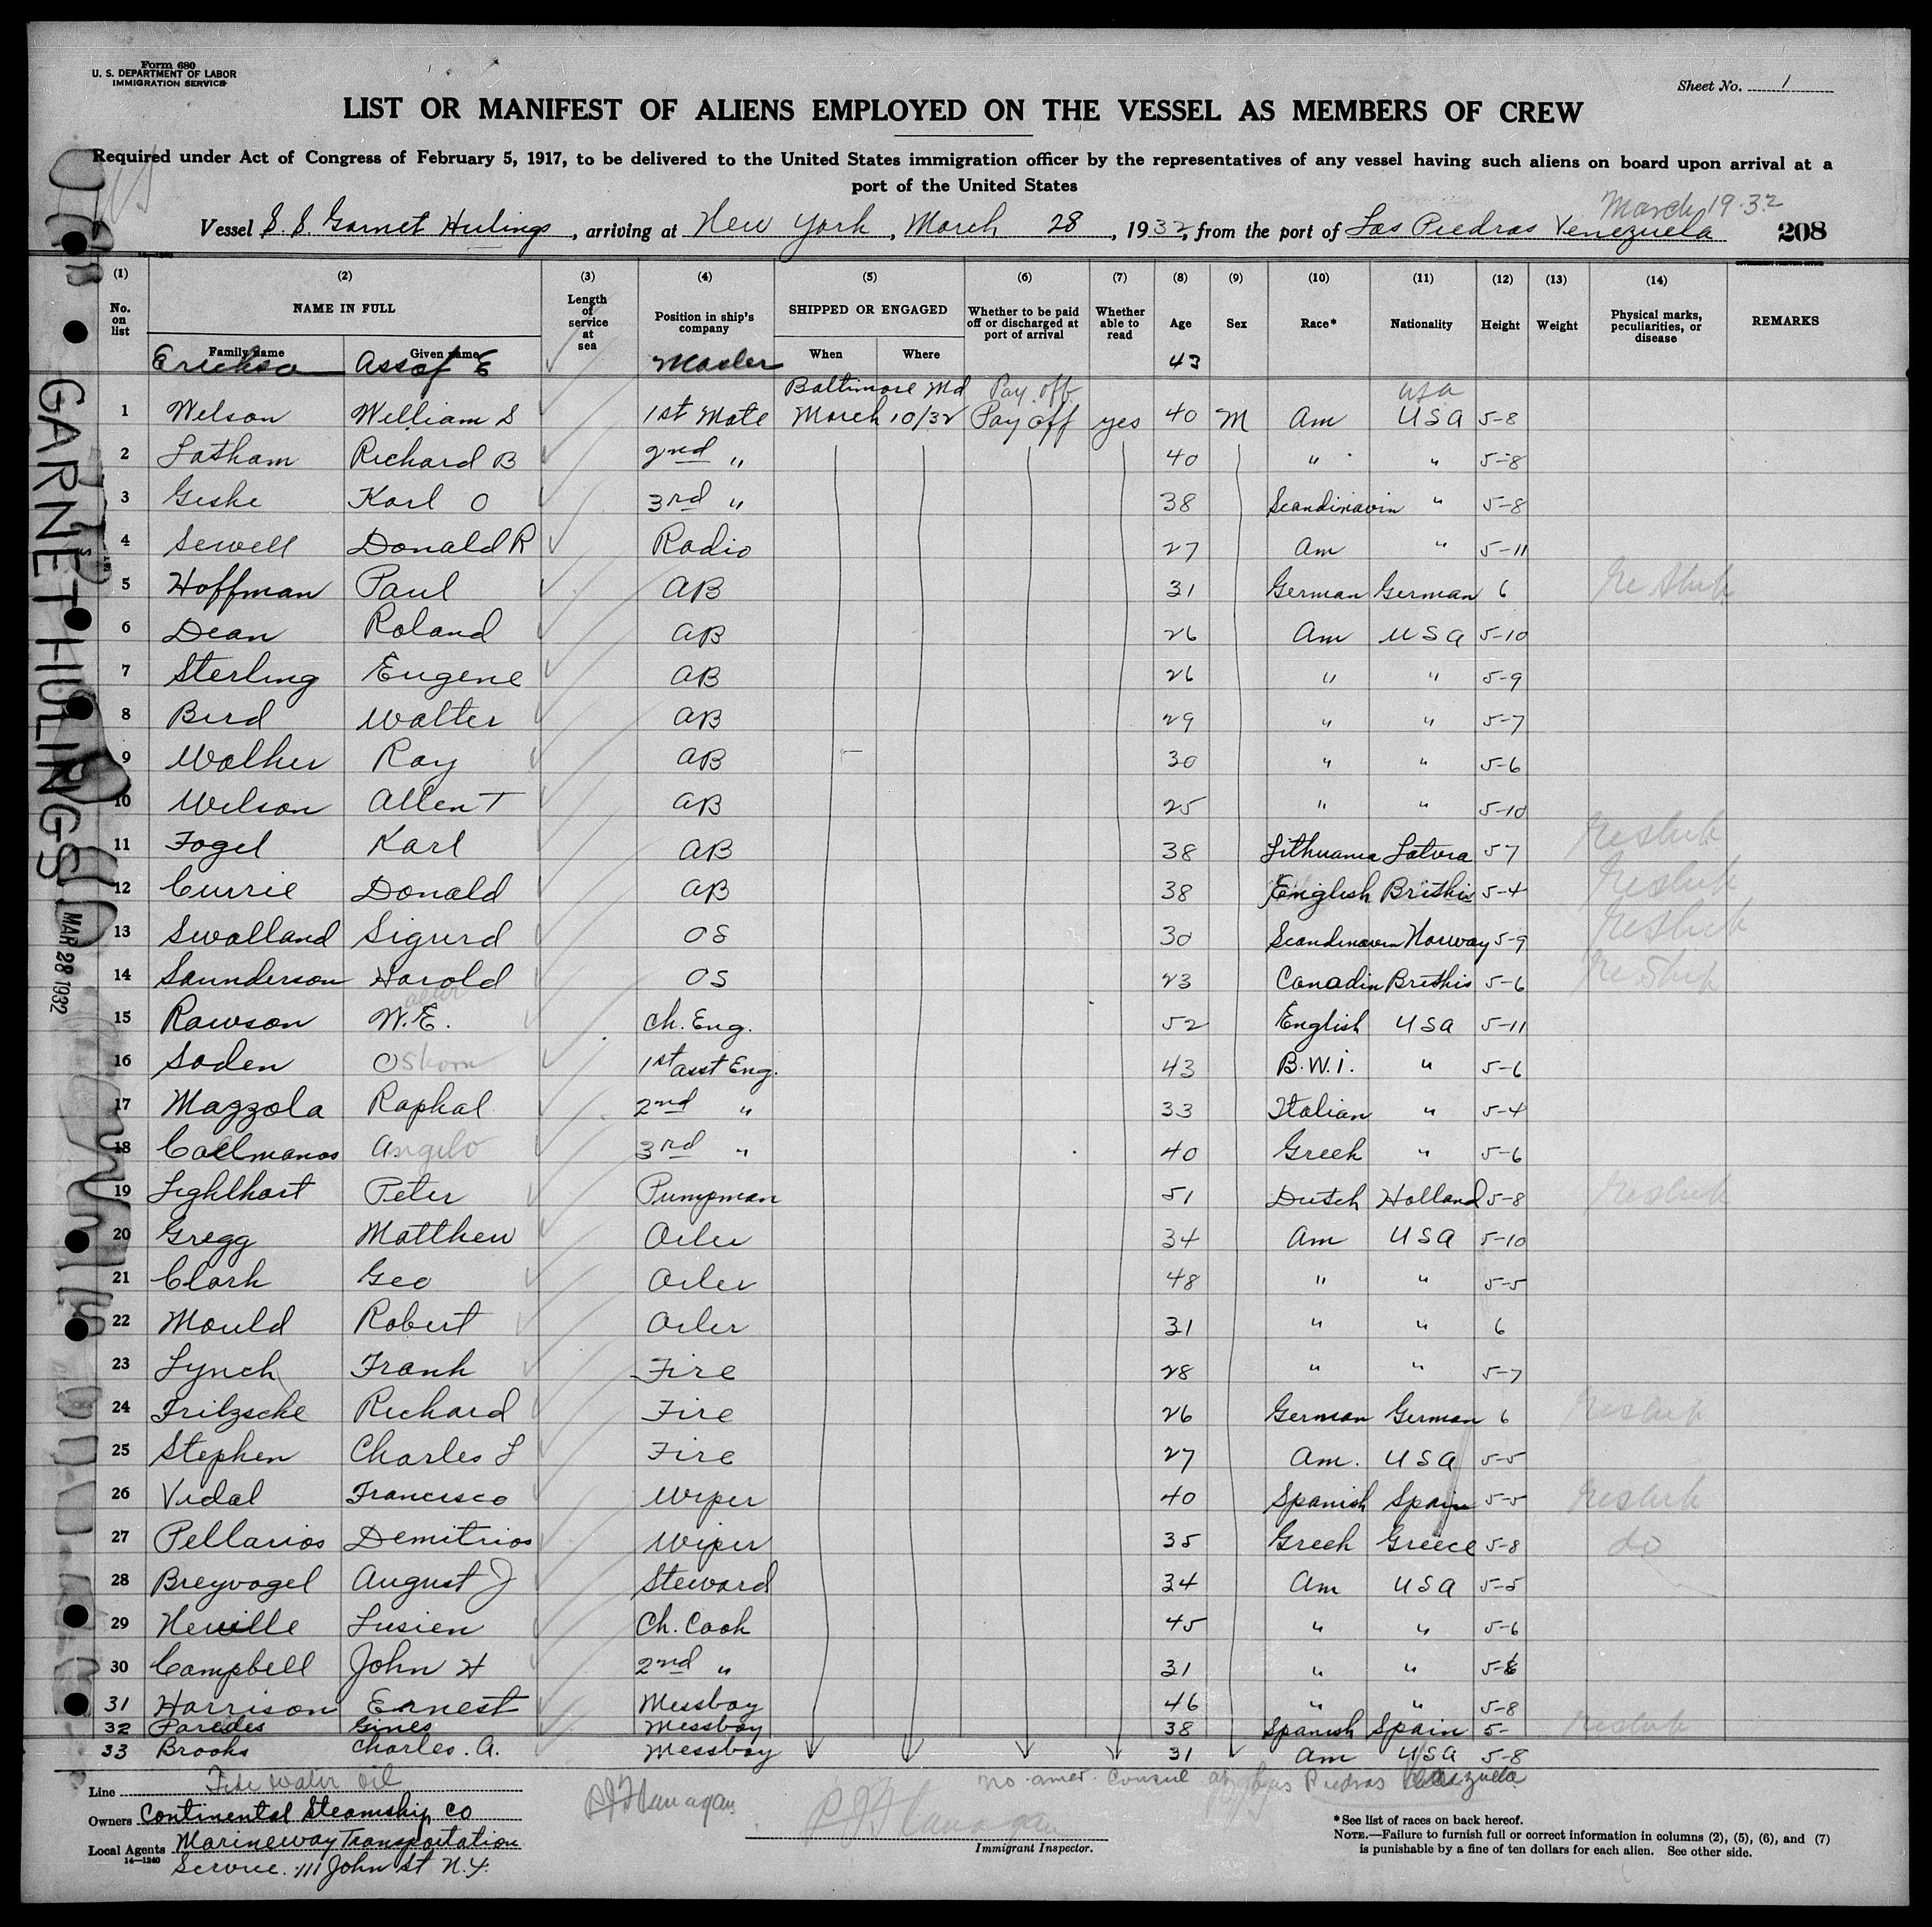 Form 680
U. S. DEPARTMENT OF LABOR
IMMIGRATION SERVICE
Sheet No. 1
LIST OR MANIFEST OF ALIENS EMPLOYED ON THE VESSEL AS MEMBERS OF CREW
Required under Act of Congress of February 5, 1917, to be delivered to the United States immigration officer by the representatives of any vessel having such aliens on board upon arrival at a
port of the United States
March 19. 32
Vessel S. S. Garnet Hulings, arriving at New York, March 28, 1932, from the port of Las Piedras Venezuela 208
(1) (2) (3) (4) (5) (6) (7) (8) (9) (10) (11) (12) (13) (14)
No. on list NAME IN FULL Family name Given name Length of service at sea Position in ship's company SHIPPED OR ENGAGED When Where Whether to be paid off or discharged at port of arrival Whether able to read Age Sex Race* Nationality Height Weight Physical marks, peculiarities, or disease REMARKS
Erickso Assof E Master 43
Baltimore Md Pay off USA
1 Welson William S 1st Mate March 10/32 Pay off yes 40 M Am USA 5-8
2 Latham Richard B 2nd " 40 " " 5-8
3 Geske Karl O 3rd " 38 Scandinavin " 5-8
4 Sewell Donald R Radio 27 Am " 5-11
5 Hoffman Paul AB 31 German German 6
6 Dean Roland AB 26 Am USA 5-10
7 Sterling Eugene AB 26 " " 5-9
8 Bird Walter AB 29 " " 5-7
9 Walker Ray AB 30 " " 5-6
10 Wilson Allen T AB 25 " " 5-10
11 Fogel Karl AB 38 Lithuania Latvia 5 7
12 Currie Donald AB 38 English Brithis 5-4
13 Swalland Sigurd OS 30 Scandinavin Norway 5-9
14 Saunderson Harold OS 23 Canadin Brithis 5-6
15 Rawson W.E. Ch. Eng. 52 English USA 5-11
16 Soden Osborn 1st asst Eng. 43 B.W.I. " 5-6
17 Mazzola Raphal 2nd " 33 Italian " 5-4
18 Callmanos Angelo 3rd " 40 Greek " 5-6
19 Lighlhart Peter Pumpman 51 Dutch Holland 5-8
20 Gregg Matthew Oiler 34 Am USA 5-10
21 Clark Geo Oiler 48 " " 5-5
22 Mould Robert Oiler 31 " " 6
23 Lynch Frank Fire 28 " " 5-7
24 Fritzsche Richard Fire 26 German German 6
25 Stephen Charles L Fire 27 Am. USA 5-5
26 Vidal Francisco Wiper 40 Spanish Spain 5-5
27 Pellarios Demitrios Wiper 35 Greek Greece 5-8 do
28 Breyvogel August J Steward 34 Am USA 5-5
29 Neville Lusien Ch. Cook 45 " " 5-6
30 Campbell John H 2nd " 31 " " 5-6
31 Harrison Ernest Messboy 46 " " 5-8
32 Paredes Gines Messboy 38 Spanish Spain 5-
33 Brooks Charles. A. Messboy 31 Am USA 5-8
Line Tide Water Oil
Owners Continental Steamship Co
Local Agents Marineway Transportation
14—1240
Service. 111 John St N.Y.
PJ Flanagan
PJ Flanagan
Immigrant Inspector.
No amer. Consul at Las Piedras Venezuela
*See list of races on back hereof.
NOTE.—Failure to furnish full or correct information in columns (2), (5), (6), and (7)
is punishable by a fine of ten dollars for each alien. See other side.
GARNET HULINGS
MAR 28 1932